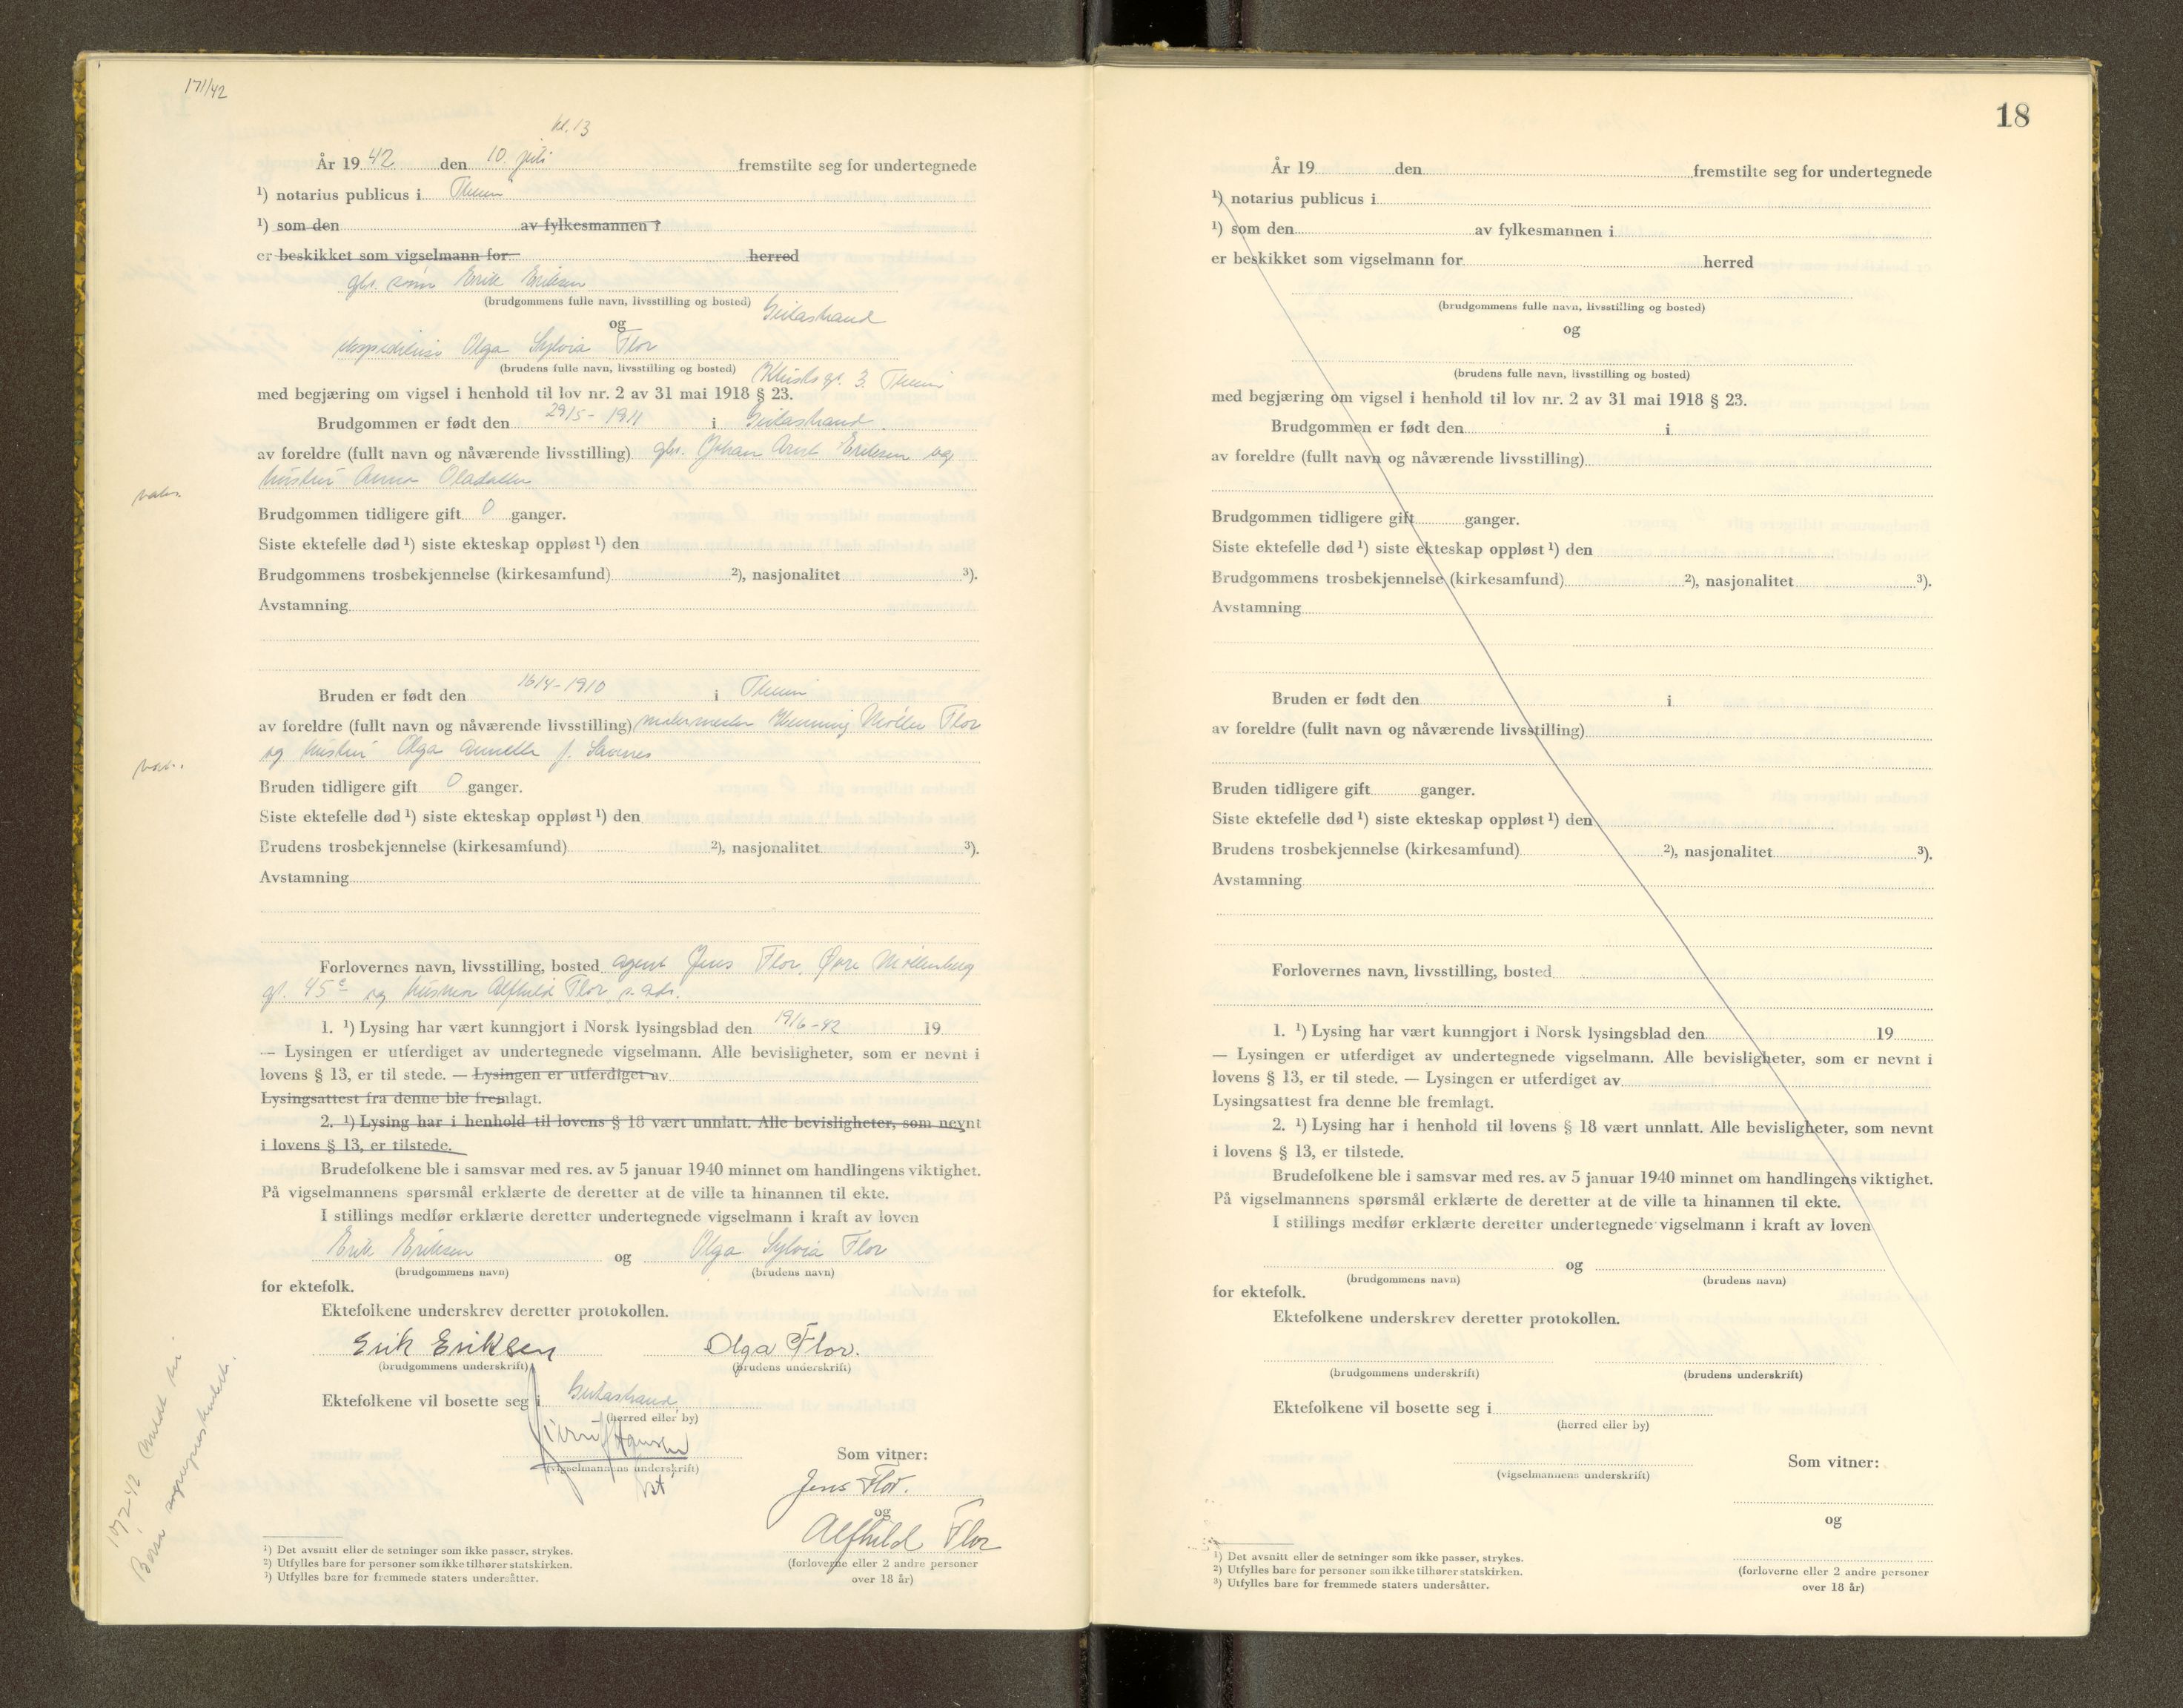 171/42
kl. 13
År 19 42 den 10. juli fremstilte seg for undertegnede
¹) notarius publicus i Thm
¹) som den av fylkesmannen i
er beskikket som vigselmann for herred
gbr. sønn Erik Eriksen
(brudgommens fulle navn, livsstilling og bosted) Geitastrand
og
ekspeditrise Olga Sylvia Flor
(brudens fulle navn, livsstilling og bosted) gt. 3. Thm
med begjæring om vigsel i henhold til lov nr. 2 av 31 mai 1918 § 23.
Brudgommen er født den 29/5 - 1911 i Geitastrand.
av foreldre (fullt navn og nåværende livsstilling) gbr. Johan Arnt Eriksen og
hustru Anna
Brudgommen tidligere gift 0 ganger.
Siste ektefelle død ¹) siste ekteskap oppløst ¹) den
Brudgommens trosbekjennelse (kirkesamfund) ²), nasjonalitet ³).
Avstamning
Bruden er født den 16/4 - 1910 i Thm
av foreldre (fullt navn og nåværende livsstilling) malermester Henning Møller Flor
og hustru Olga Annella f.
Bruden tidligere gift 0 ganger.
Siste ektefelle død ¹) siste ekteskap oppløst ¹) den
Brudens trosbekjennelse (kirkesamfund) ²), nasjonalitet ³).
Avstamning
Forlovernes navn, livsstilling, bosted agent Jens Flor, Øvre Møllenberg
gt. 45ᶜ og hustru Alfhild Flor s. adr.
1. ¹) Lysing har vært kunngjort i Norsk lysingsblad den 19/6-42 19
— Lysingen er utferdiget av undertegnede vigselmann. Alle bevisligheter, som er nevnt i
lovens § 13, er til stede. — Lysingen er utferdiget av
Lysingsattest fra denne ble fremlagt.
2. ¹) Lysing har i henhold til lovens § 18 vært unnlatt. Alle bevisligheter, som nevnt
i lovens § 13, er tilstede.
Brudefolkene ble i samsvar med res. av 5 januar 1940 minnet om handlingens viktighet.
På vigselmannens spørsmål erklærte de deretter at de ville ta hinannen til ekte.
I stillings medfør erklærte deretter undertegnede vigselmann i kraft av loven
Erik Eriksen og Olga Sylvia Flor
(brudgommens navn) (brudens navn)
for ektefolk.
Ektefolkene underskrev deretter protokollen.
Erik Eriksen Olga Flor.
(brudgommens underskrift) (brudens underskrift)
Ektefolkene vil bosette seg i Geitastrand
(herred eller by)
Hansen
(vigselmannens underskrift)
Som vitner:
Jens Flor.
og
Alfhild Flor
(forloverne eller 2 andre personer
over 18 år)
10/7-42 meldt til
¹) Det avsnitt eller de setninger som ikke passer, strykes.
²) Utfylles bare for personer som ikke tilhører statskirken.
³) Utfylles bare for fremmede staters undersåtter.
18
År 19 den fremstilte seg for undertegnede
¹) notarius publicus i
¹) som den av fylkesmannen i
er beskikket som vigselmann for herred
(brudgommens fulle navn, livsstilling og bosted)
og
(brudens fulle navn, livsstilling og bosted)
med begjæring om vigsel i henhold til lov nr. 2 av 31 mai 1918 § 23.
Brudgommen er født den i
av foreldre (fullt navn og nåværende livsstilling)
Brudgommen tidligere gift ganger.
Siste ektefelle død ¹) siste ekteskap oppløst ¹) den
Brudgommens trosbekjennelse (kirkesamfund) ²), nasjonalitet ³).
Avstamning
Bruden er født den i
av foreldre (fullt navn og nåværende livsstilling)
Bruden tidligere gift ganger.
Siste ektefelle død ¹) siste ekteskap oppløst ¹) den
Brudens trosbekjennelse (kirkesamfund) ²), nasjonalitet ³).
Avstamning
Forlovernes navn, livsstilling, bosted
1. ¹) Lysing har vært kunngjort i Norsk lysingsblad den 19
— Lysingen er utferdiget av undertegnede vigselmann. Alle bevisligheter, som er nevnt i
lovens § 13, er til stede. — Lysingen er utferdiget av
Lysingsattest fra denne ble fremlagt.
2. ¹) Lysing har i henhold til lovens § 18 vært unnlatt. Alle bevisligheter, som nevnt
i lovens § 13, er tilstede.
Brudefolkene ble i samsvar med res. av 5 januar 1940 minnet om handlingens viktighet.
På vigselmannens spørsmål erklærte de deretter at de ville ta hinannen til ekte.
I stillings medfør erklærte deretter undertegnede vigselmann i kraft av loven
og
(brudgommens navn) (brudens navn)
for ektefolk.
Ektefolkene underskrev deretter protokollen.
(brudgommens underskrift) (brudens underskrift)
Ektefolkene vil bosette seg i
(herred eller by)
Som vitner:
(vigselmannens underskrift)
og
(forloverne eller 2 andre personer
over 18 år)
¹) Det avsnitt eller de setninger som ikke passer, strykes.
²) Utfylles bare for personer som ikke tilhører statskirken.
³) Utfylles bare for fremmede staters undersåtter.